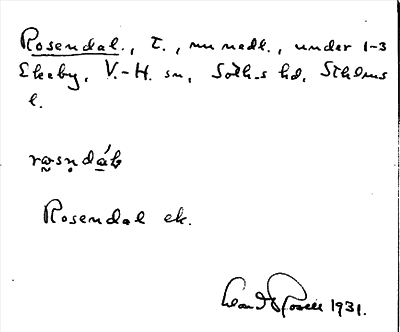 Rosendal., T., nu nedl., under 1-3
Ekeby, V.-H. sn, Soth-s hd, Sthlms
l.
Rosendal ek.
1931.